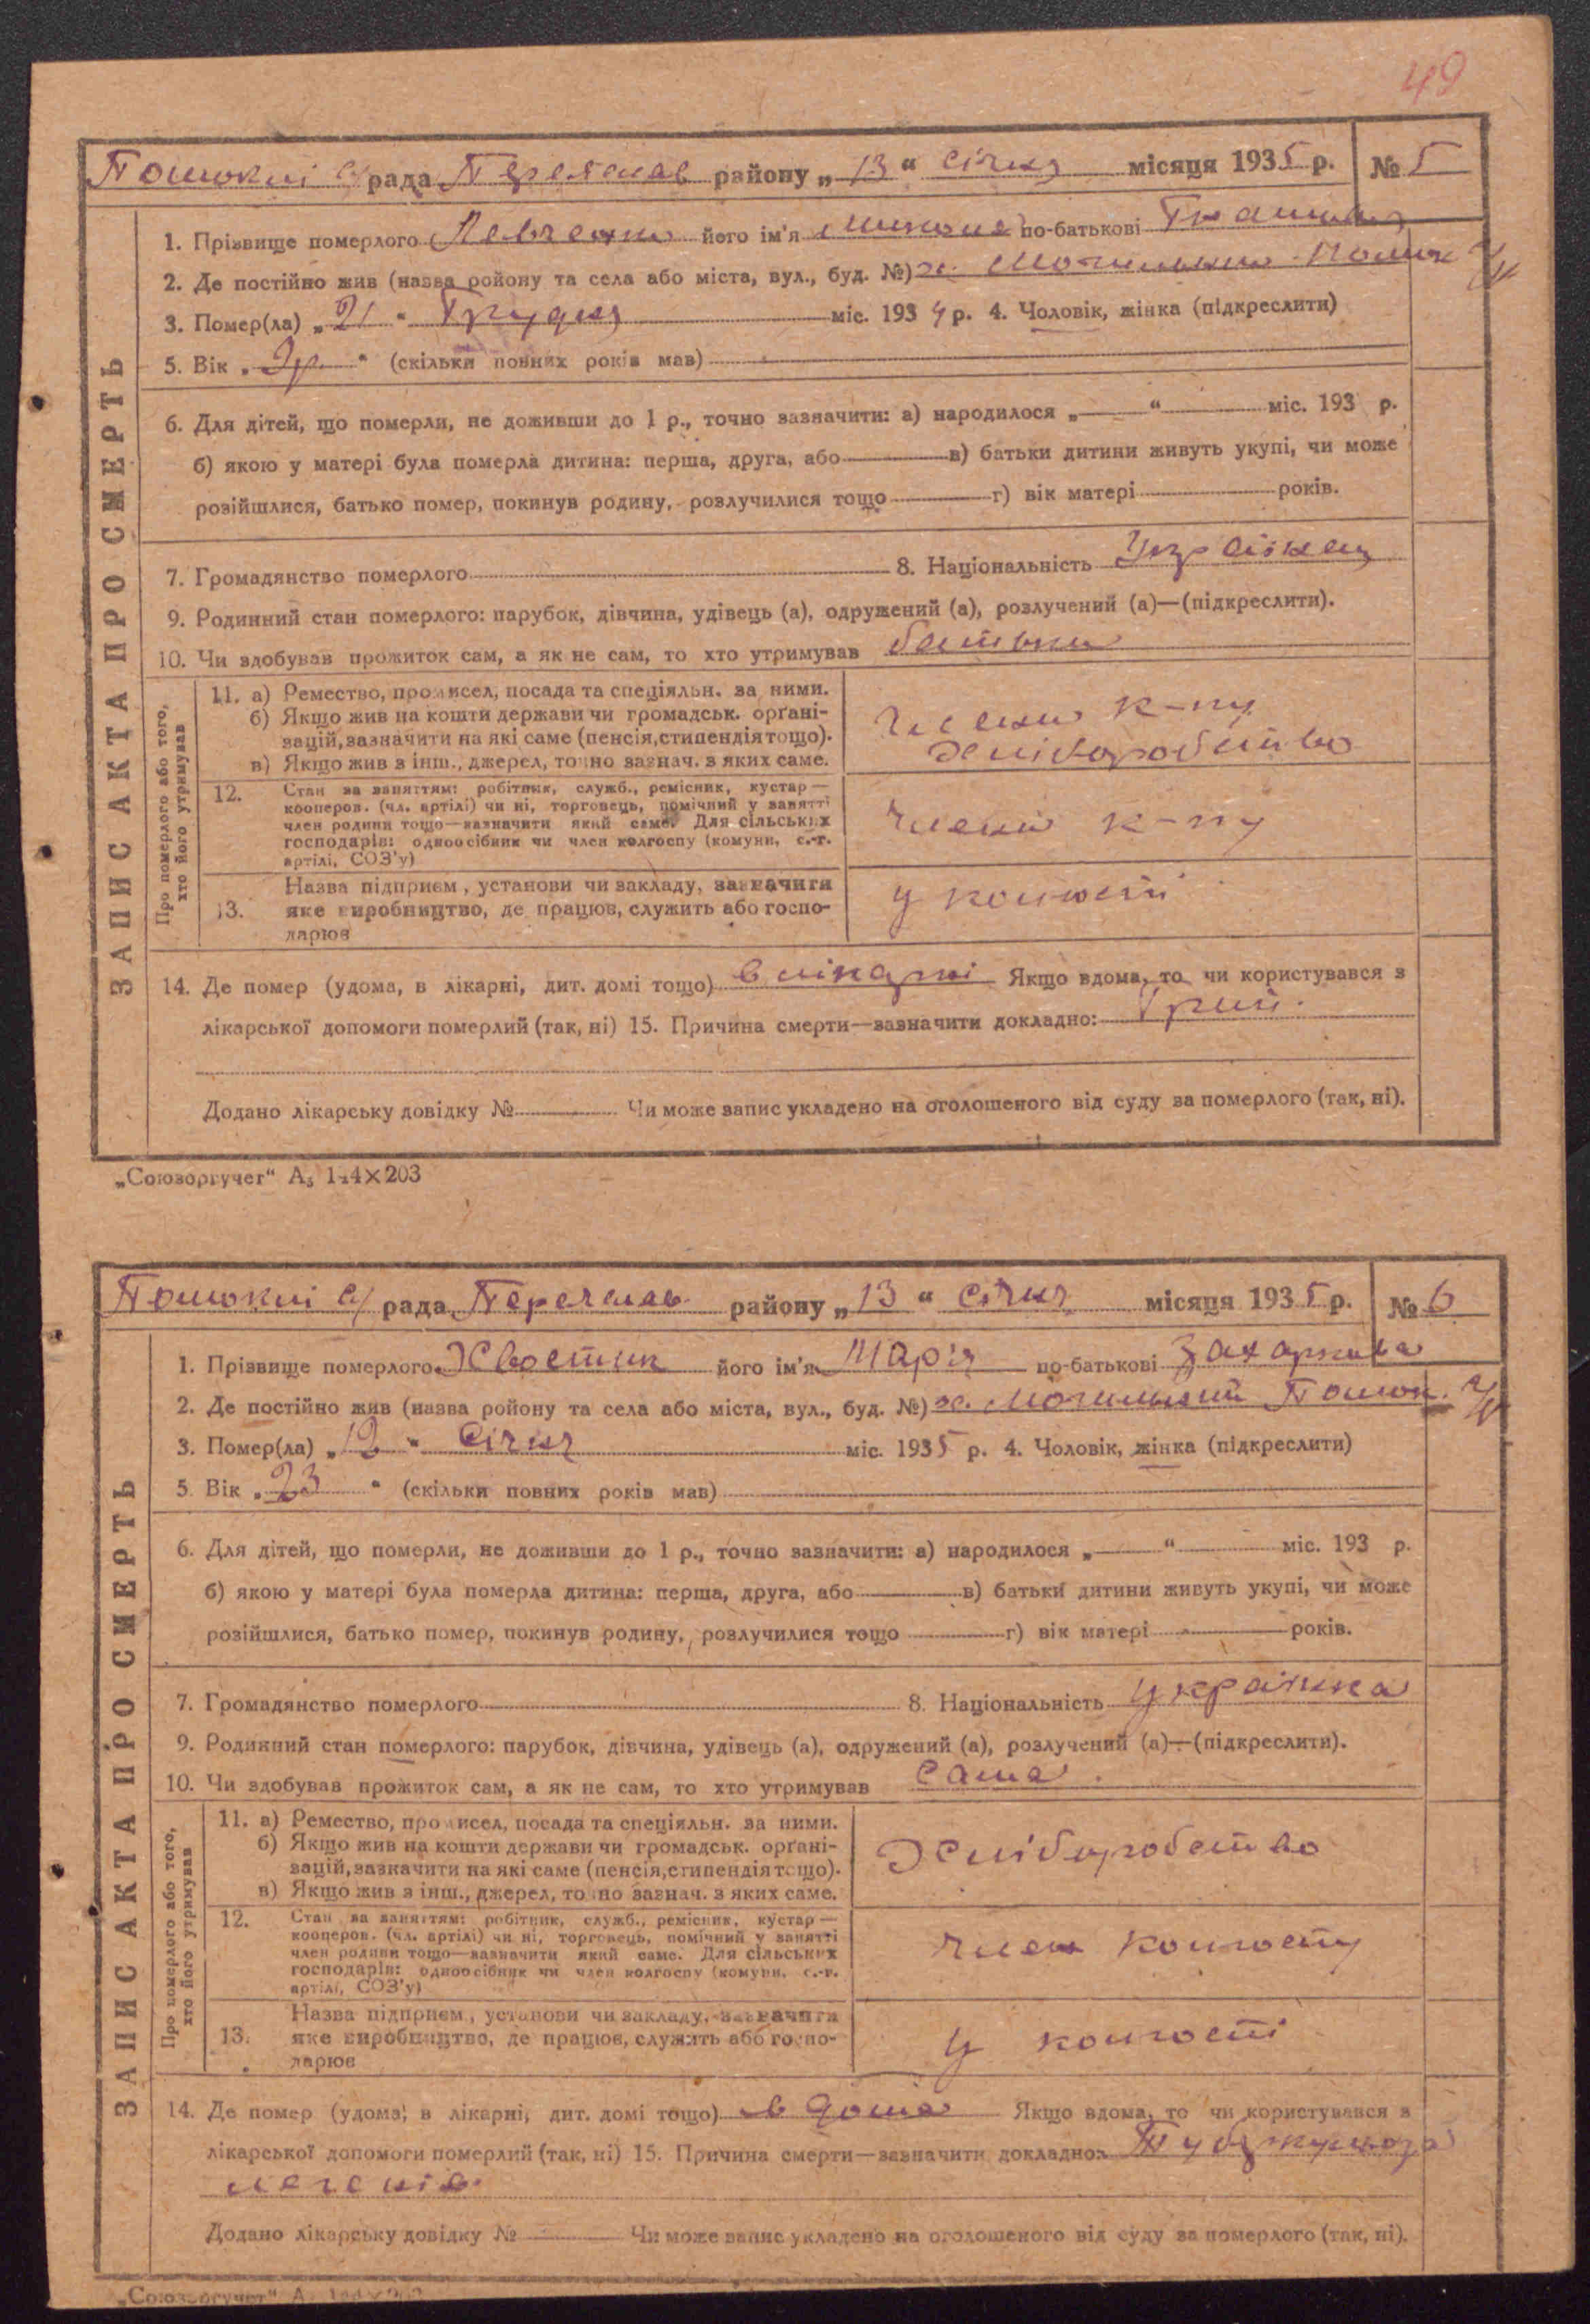 49
Пошокні с/рада Переяслав району „13“ січня місяця 1935 р. № 5
ЗАПИС АКТА ПРО СМЕРТЬ
1. Прізвище померлого Левченко його ім'я Микола по-батькові
2. Де постійно жив (назва ройону та села або міста, вул., буд. №) х.
3. Помер(ла) „21“ Грудня міс. 1934 р. 4. Чоловік, жінка (підкреслити)
5. Вік „3р.“ (скільки повних років мав)
6. Для дітей, що померли, не доживши до 1 р., точно зазначити: а) народилося „—“ міс. 193 р.
б) якою у матері була померла дитина: перша, друга, або — в) батьки дитини живуть укупі, чи може
розійшлися, батько помер, покинув родину, розлучилися тощо — г) вік матері — років.
7. Громадянство померлого 8. Національність Українец
9. Родинний стан померлого: парубок, дівчина, удівець (а), одружений (а), розлучений (а)—(підкреслити).
10. Чи здобував прожиток сам, а як не сам, то хто утримував батьки
Про померлого або того, хто його утримував
11. а) Ремество, промисел, посада та спеціяльн. за ними.
б) Якщо жив на кошти держави чи громадськ. орґані-
зацій, зазначити на які саме (пенсія, стипендія тощо).
в) Якщо жив з інш., джерел, точно зазнач. з яких саме.
члени к-пу
Хліборобство
12. Стан за заняттям: робітник, служб., ремісник, кустар —
кооперов. (чл. артілі) чи ні, торговець, помічний у занятті
член родини тощо—зазначити який саме. Для сільських
господарів: одноосібник чи член колгоспу (комуни, с.-г.
артілі, СОЗ'у)
члени к-пу
13. Назва підприєм., установи чи закладу, зазначити
яке виробництво, де працює, служить або госпо-
дарює
у колгоспі
14. Де помер (удома, в лікарні, дит. домі тощо) в лікарні Якщо вдома, то чи користувався з
лікарської допомоги померлий (так, ні) 15. Причина смерти—зазначити докладно: Грип.
Додано лікарську довідку № — Чи може запис укладено на оголошеного від суду за померлого (так, ні).
„Союзоргучет“ А₅ 144×203
Пошокні с/рада Переяслав району „13“ січня місяця 1935 р. № 6
ЗАПИС АКТА ПРО СМЕРТЬ
1. Прізвище померлого Хвостик його ім'я Мар'я по-батькові Захаровна
2. Де постійно жив (назва ройону та села або міста, вул., буд. №) х.
3. Помер(ла) „12“ Січня міс. 1935 р. 4. Чоловік, жінка (підкреслити)
5. Вік „23“ (скільки повних років мав)
6. Для дітей, що померли, не доживши до 1 р., точно зазначити: а) народилося „—“ міс. 193 р.
б) якою у матері була померла дитина: перша, друга, або — в) батьки дитини живуть укупі, чи може
розійшлися, батько помер, покинув родину, розлучилися тощо — г) вік матері — років.
7. Громадянство померлого 8. Національність українка
9. Родинний стан померлого: парубок, дівчина, удівець (а), одружений (а), розлучений (а)—(підкреслити).
10. Чи здобував прожиток сам, а як не сам, то хто утримував сама.
Про померлого або того, хто його утримував
11. а) Ремество, промисел, посада та спеціяльн. за ними.
б) Якщо жив на кошти держави чи громадськ. орґані-
зацій, зазначити на які саме (пенсія, стипендія тощо).
в) Якщо жив з інш., джерел, точно зазнач. з яких саме.
Хліборобство
12. Стан за заняттям: робітник, служб., ремісник, кустар —
кооперов. (чл. артілі) чи ні, торговець, помічний у занятті
член родини тощо—зазначити який саме. Для сільських
господарів: одноосібник чи член колгоспу (комуни, с.-г.
артілі, СОЗ'у)
член колгоспу
13. Назва підприєм., установи чи закладу, зазначити
яке виробництво, де працює, служить або госпо-
дарює
у колгоспі
14. Де помер (удома, в лікарні, дит. домі тощо) в дома Якщо вдома, то чи користувався з
лікарської допомоги померлий (так, ні) 15. Причина смерти—зазначити докладно:
легенів
Додано лікарську довідку № — Чи може запис укладено на оголошеного від суду за померлого (так, ні).
„Союзоргучет“ А₅ 144×203